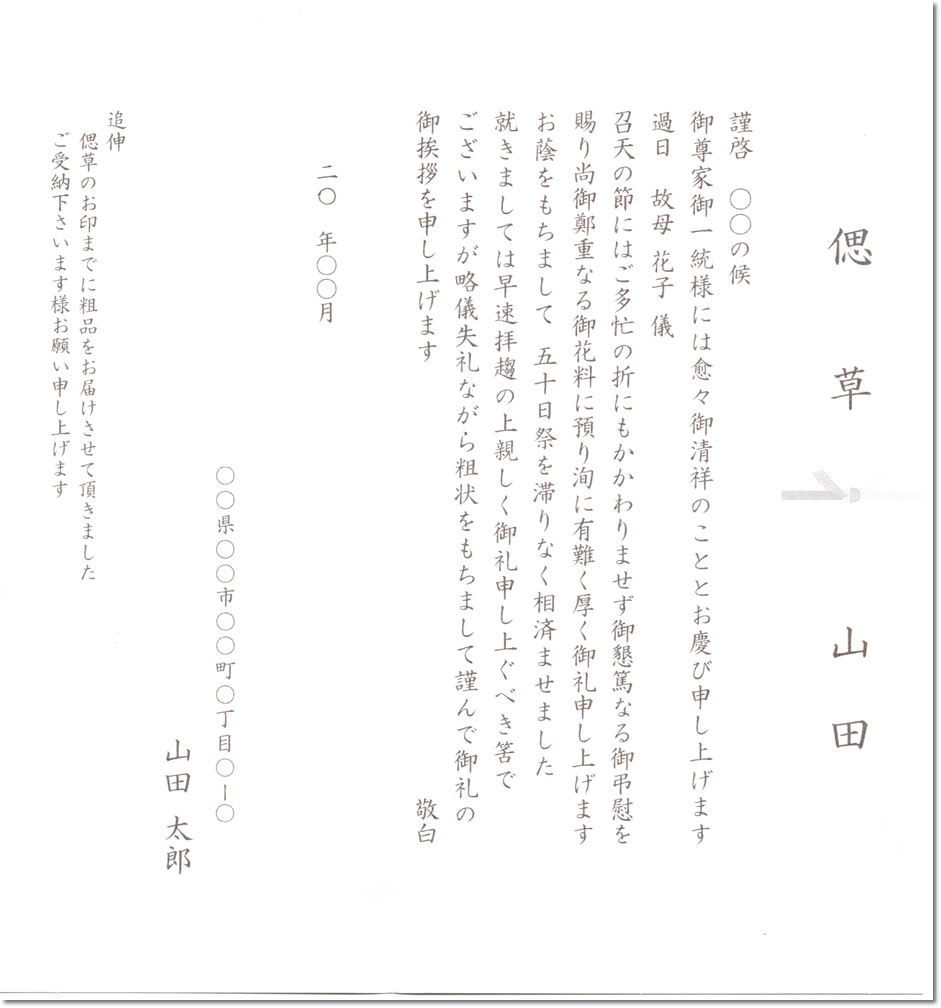 偲草 山田
謹啓 〇〇の候
御尊家御一統様には愈々御清祥のこととお慶び申し上げます
過日 故母 花子 儀
召天の節にはご多忙の折にもかかわりませず御懇篤なる御弔慰を
賜り尚御鄭重なる御花料に預り洵に有難く厚く御礼申し上げます
お蔭をもちまして 五十日祭を滞りなく相済ませました
就きましては早速拝趨の上親しく御礼申し上ぐべき筈で
ございますが略儀失礼ながら粗状をもちまして謹んで御礼の
御挨拶を申し上げます 敬白
二〇 年〇〇月
〇〇県〇〇市〇〇町〇丁目〇ー〇
山田 太郎
追伸
偲草のお印までに粗品をお届けさせて頂きました
ご受納下さいます様お願い申し上げます